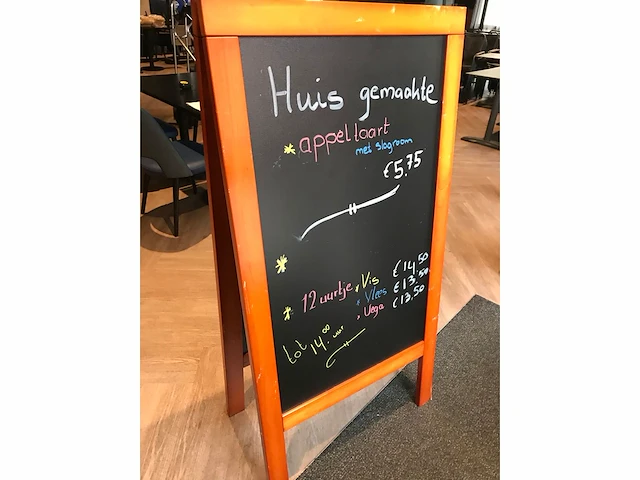 Huis gemaakte
* appeltaart
met slagroom
€5.75
*
* 12 uurtje * Vis €14,50
* Vlees €13,50
* Vega €13.50
tot 14.00 uur